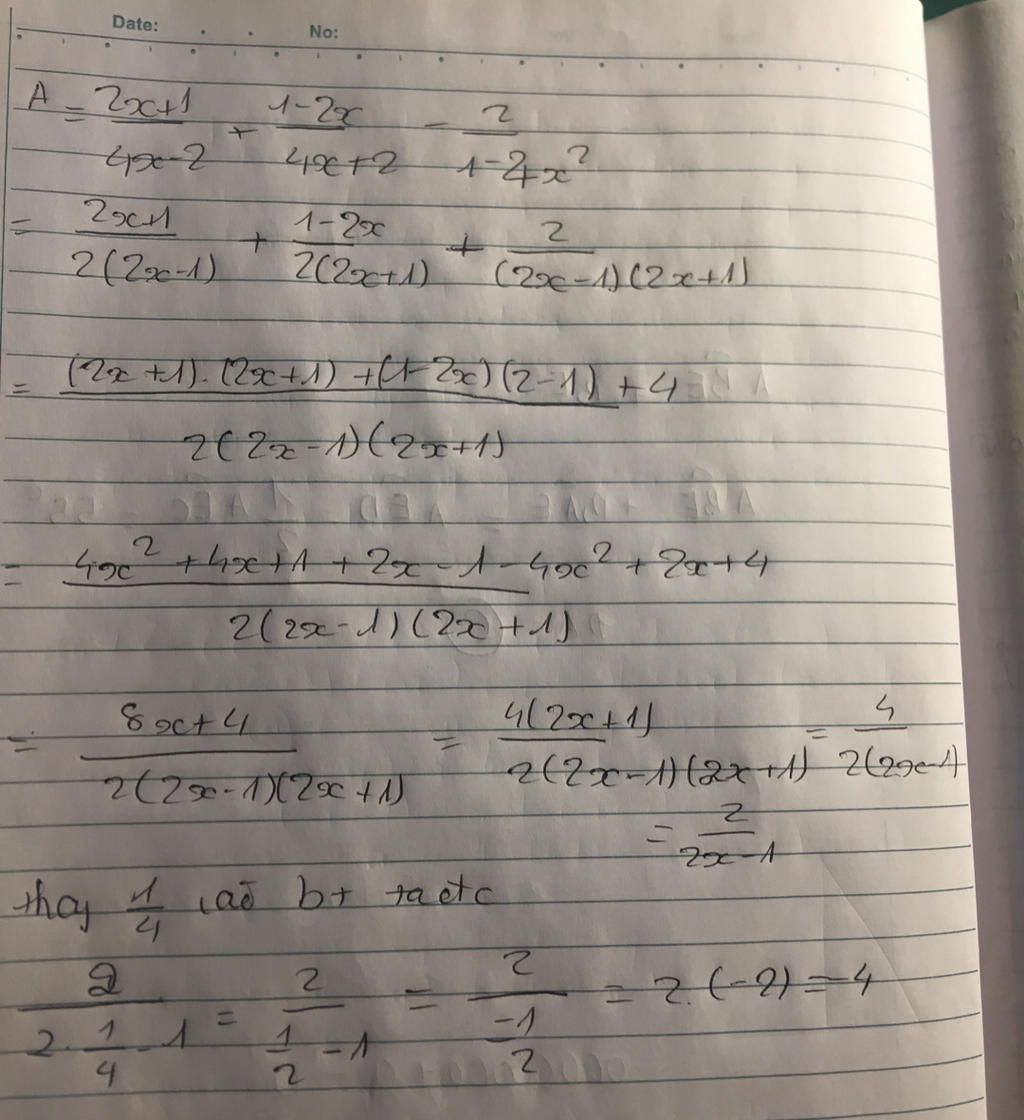 Date: No:
A = \frac{2x+1}{4x-2} + \frac{1-2x}{4x+2} - \frac{2}{1-4x^2}
= \frac{2x+1}{2(2x-1)} + \frac{1-2x}{2(2x+1)} + \frac{2}{(2x-1)(2x+1)}
= \frac{(2x+1).(2x+1)+(1-2x)(2-1)+4}{2(2x-1)(2x+1)}
= \frac{4x^2+4x+1+2x-1-4x^2+2x+4}{2(2x-1)(2x+1)}
= \frac{8x+4}{2(2x-1)(2x+1)} = \frac{4(2x+1)}{2(2x-1)(2x+1)} = \frac{4}{2(2x-1)}
= \frac{2}{2x-1}
thay \frac{1}{4} bt ta
\frac{2}{2.\frac{1}{4}-1} = \frac{2}{\frac{1}{2}-1} = \frac{2}{\frac{-1}{2}} = 2.(-2)=-4